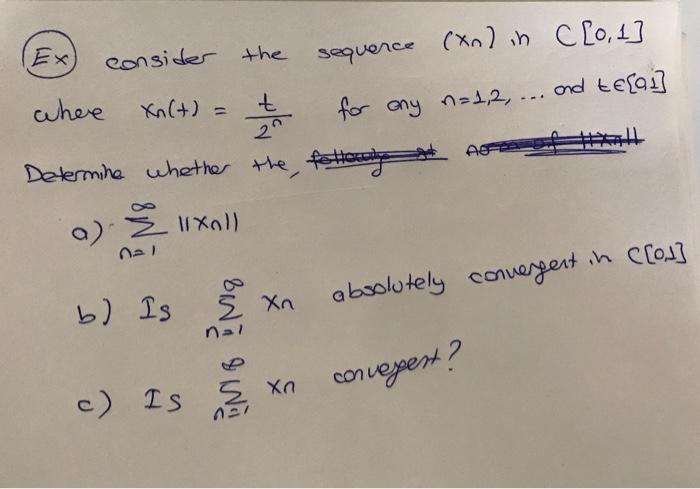 Ex consider the sequence (xn) in C[0,1]
where xn(t) = t/2^n for any n=1,2, ... and t∈[0,1]
Determine whether the,
a) ∑_{n=1}^{∞} ||xn||
b) Is ∑_{n=1}^{∞} xn absolutely convergent in C[0,1]
c) Is ∑_{n=1}^{∞} xn convergent?